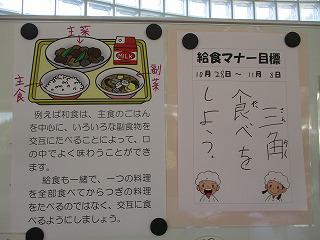 主菜
MILK
主食
副菜
例えば和食は、主食のごはん
を中心に、いろいろな副食物を
交互にたべることによって、口
の中でよく味わうことができま
す。
給食も一緒で、一つの料理
を全部食べてからつぎの料理
をたべるのではなく、交互に食
べるようにしましょう。
給食マナー目標
10月28日～11月8日
三角
食べを
しよう。